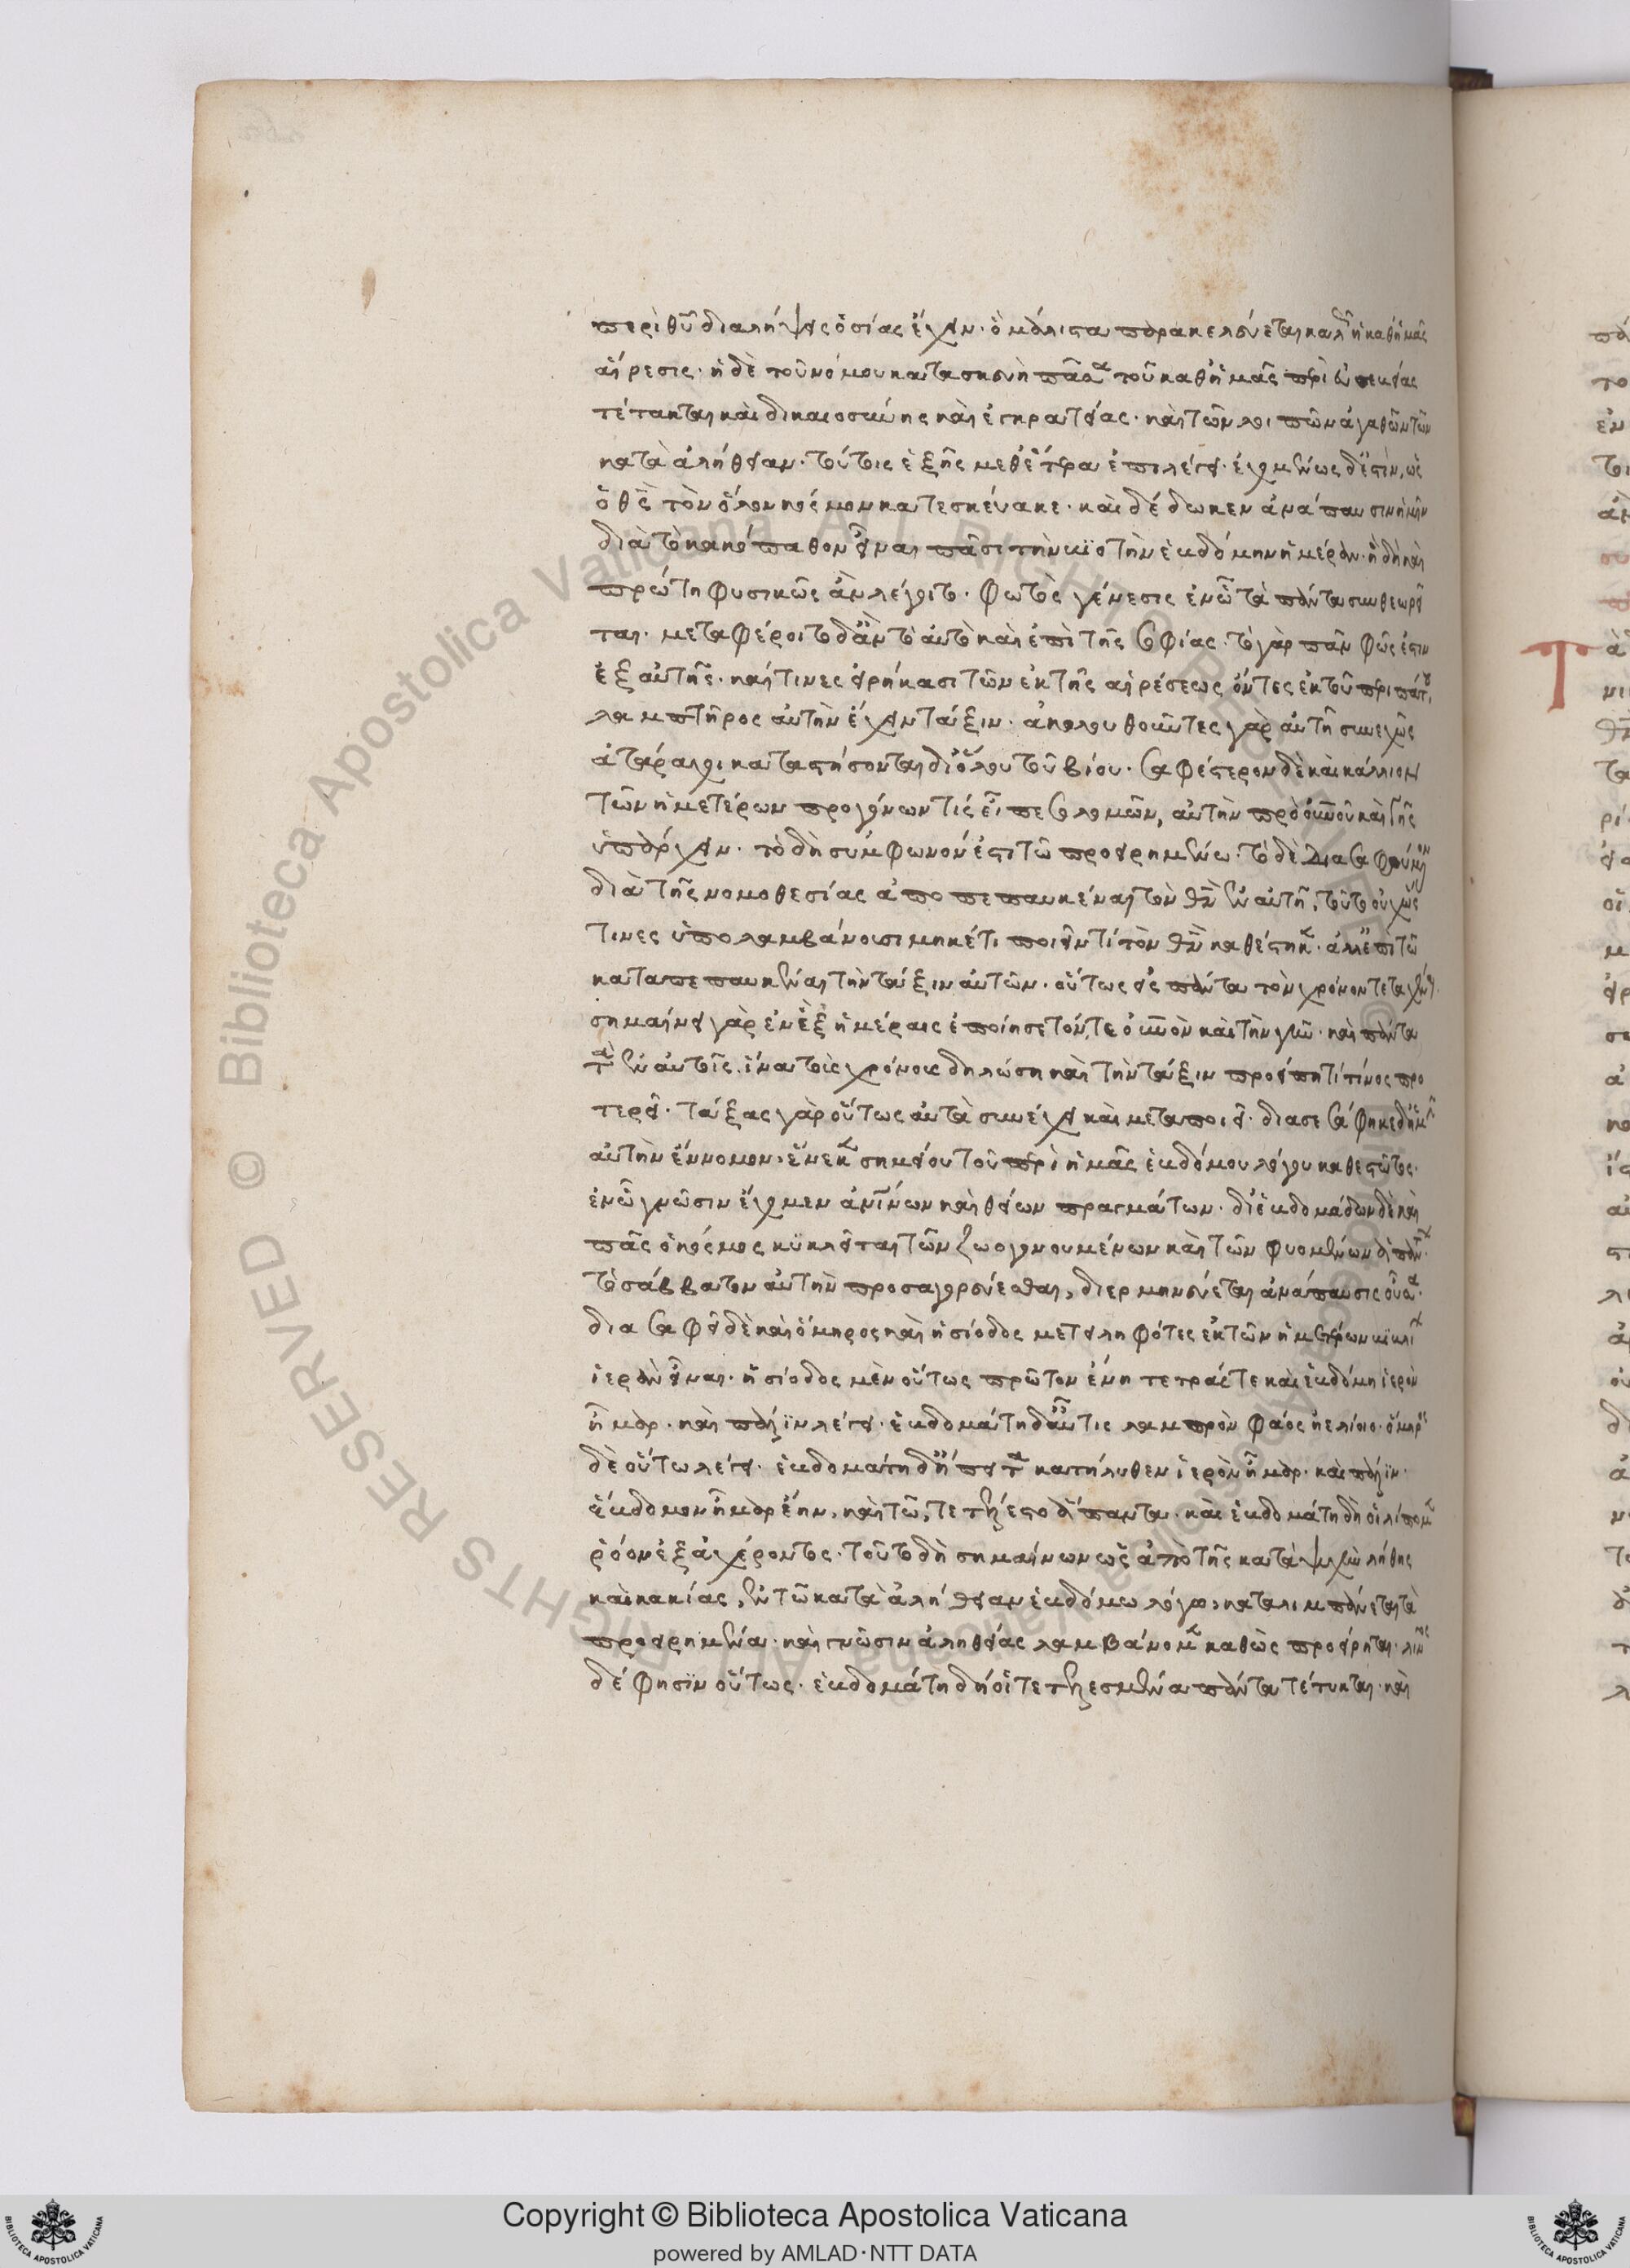 περὶ θυ διαλήψεις ὁσίας ἔχειν· ὃ μάλιστα παρακελεύεται καλῶς ἡ καθ' ἡμᾶς
αἵρεσις· ἡ δὲ τοῦ νόμου κατασκευὴ πᾶσα τοῦ καθ' ἡμᾶς περὶ εὐσεβείας
τέτακται καὶ δικαιοσύνης καὶ ἐγκρατείας· καὶ τῶν λοιπῶν ἀγαθῶν τῶν
κατὰ ἀλήθειαν· τούτοις ἑξῆς μεθ' ἕτερα ἐπιλέγει· ἐχομένως δ' ἐστὶν, ὡς
ὁ θς τὸν ὅλον κόσμον κατεσκεύακε· καὶ δέδωκεν ἀνάπαυσιν ἡμῖν
διὰ τὸ κακόπαθον εἶναι πᾶσι τὴν βιοτὴν ἑβδόμην ἡμέραν· ἣ δὴ καὶ
πρώτη φυσικῶς ἂν λέγοιτο· φωτὸς γένεσις ἐν ᾧ τὰ πάντα συνθεωρεῖ
ται· μεταφέροιτο δ' ἂν τὸ αὐτὸ καὶ ἐπὶ τῆς σοφίας· τὸ γὰρ πᾶν φῶς ἐστιν
ἐξ αὐτῆς· καί τινες εἰρήκασι τῶν ἐκ τῆς αἱρέσεως ὄντες ἐκ τοῦ περιπάτου,
λαμπτῆρος αὐτὴν ἔχειν τάξιν· ἀκολουθοῦντες γὰρ αὐτῇ συνεχῶς
ἀτάραχοι καταστήσονται δι' ὅλου τοῦ βίου· σαφέστερον δὲ καὶ κάλλιον
τῶν ἡμετέρων προγόνων τίς εἶπε σολομῶν, αὐτὴν πρὸ οὐνοῦ καὶ γῆς
ὑπάρχειν· τὸ δὴ σύμφωνόν ἐστι τῷ προειρημένῳ· τὸ δὲ διασαφούμενον
διὰ τῆς νομοθεσίας ἀποπεπαυκέναι τὸν θν ἐν αὐτῇ, τοῦτο οὐχ ὥς
τινες ὑπολαμβάνουσι μηκέτι ποιεῖν τί τὸν θν καθέστηκεν· ἀλλ' ἐπὶ τῷ
καταπεπαυκέναι τὴν τάξιν αὐτῶν· οὕτως εἰς πάντα τὸν χρόνον τεταχέναι·
σημαίνει γὰρ ἐν ἓξ ἡμέραις ἐποίησε τόν, τε οὐνὸν καὶ τὴν γῆν· καὶ πάντα
τὰ ἐν αὐτοῖς. ἵνα τοὺς χρόνους δηλώσῃ καὶ τὴν τάξιν προείπῃ τί τίνος προ
τερεῖ· τάξας γὰρ οὕτως αὐτὰ συνέχει καὶ μεταποιεῖ· διασεσάφηκε δ' ἡμῖν
αὐτὴν ἔννομον· ἕνεκεν σημείου τοῦ περὶ ἡμᾶς ἑβδόμου λόγου καθεστῶτος·
ἐν ᾧ γνῶσιν ἔχομεν ἀνίνων καὶ θείων πραγμάτων· δι' ἑβδομάδων δὲ καὶ
πᾶς ὁ κόσμος κυκλεῖται τῶν ζωογονουμένων καὶ τῶν φυομένων ἁπάντων·
τὸ σάββατον αὐτὴν προσαγορεύεσθαι, διερμηνεύεται ἀνάπαυσις οὖσα·
διασαφεῖ δὲ καὶ ὅμηρος καὶ ἡσίοδος μετειληφότες ἐκ τῶν ἡμετέρων βιβλίων
ἱερὰν εἶναι· ἡσίοδος μὲν οὕτως πρῶτον ἕνη τετράς τε καὶ ἑβδόμη ἱερὸν
ἦμαρ· καὶ πάλιν λέγει· ἑβδομάτη δ' αὖτις λαμπρὸν φάος ἠελίοιο· ὅμηρος
δὲ οὕτω λέγει· ἑβδομάτη δ' ἤπειτα κατήλυθεν ἱερὸν ἦμαρ· καὶ πάλιν·
ἕβδομον ἦμαρ ἔην, καὶ τῷ, τετέλεστο ἅπαντα· καὶ ἑβδομάτη δὴ οἱ λίπομεν
ῥόον ἐξ ἀχέροντος· τοῦτο δὴ σημαίνων ὡς ἀπὸ τῆς κατὰ ψυχὴν λήθης
καὶ κακίας, ἐν τῷ κατὰ ἀλήθειαν ἑβδόμῳ λόγῳ, καταλιμπάνεται τὰ
προειρημένα· καὶ γνῶσιν ἀληθείας λαμβάνομεν καθὼς προείρηται· λῖνος
δέ φησιν οὕτως· ἑβδομάτη δή οἱ τετελεσμένα πάντα τέτυκται· καὶ